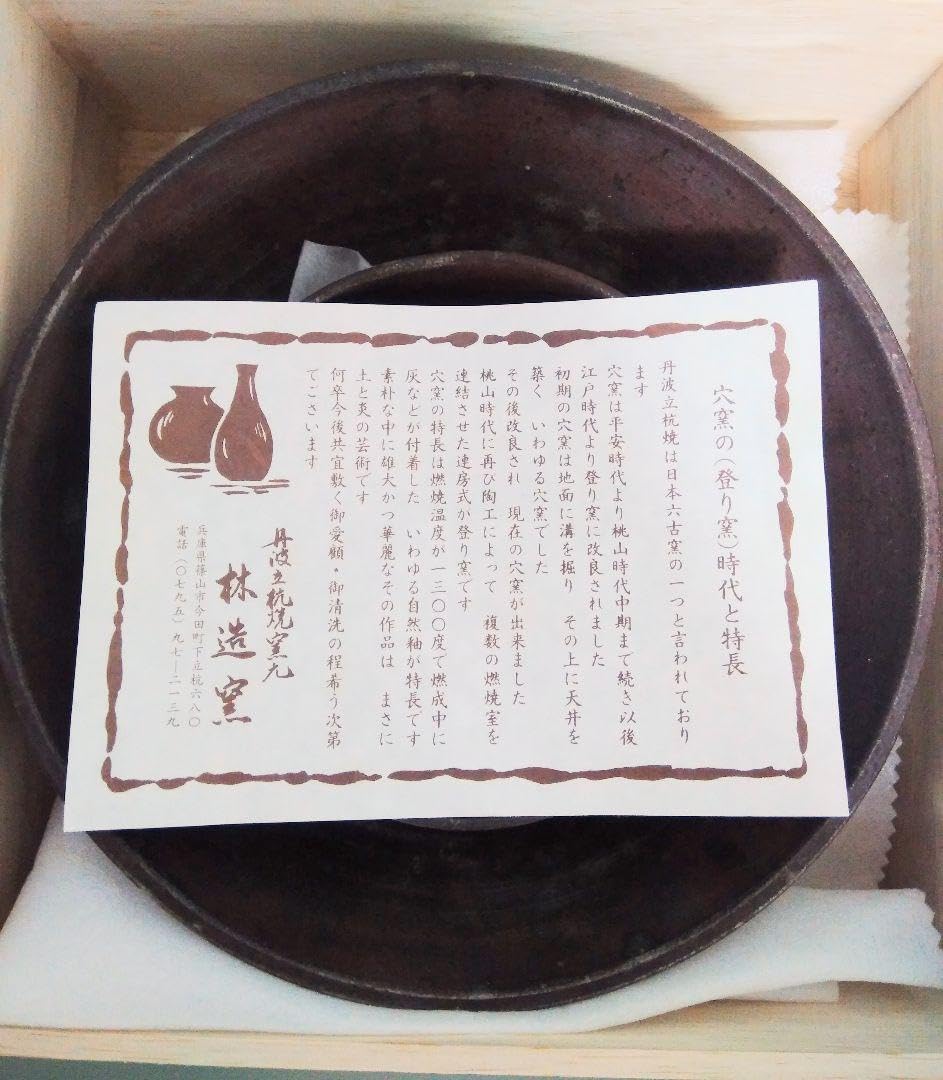 穴窯の(登り窯)時代と特長
丹波立杭焼は日本六古窯の一つと言われており
ます
穴窯は平安時代より桃山時代中期まで続き以後
江戸時代より登り窯に改良されました
初期の穴窯は地面に溝を掘り その上に天井を
築く いわゆる穴窯でした
その後改良され 現在の穴窯が出来ました
桃山時代に再び陶工によって 複数の燃焼室を
連結させた連房式が登り窯です
穴窯の特長は燃焼温度が一三〇〇度で燃成中に
灰などが付着した いわゆる自然釉が特長です
素朴な中に雄大かつ華麗なその作品は まさに
土と炎の芸術です
何卒今後共宜敷く御愛顧・御清洗の程希う次第
でございます
丹波立杭焼窯元
林造窯
兵庫県篠山市今田町下立杭六八〇
電話(〇七九五)九七―二一三九